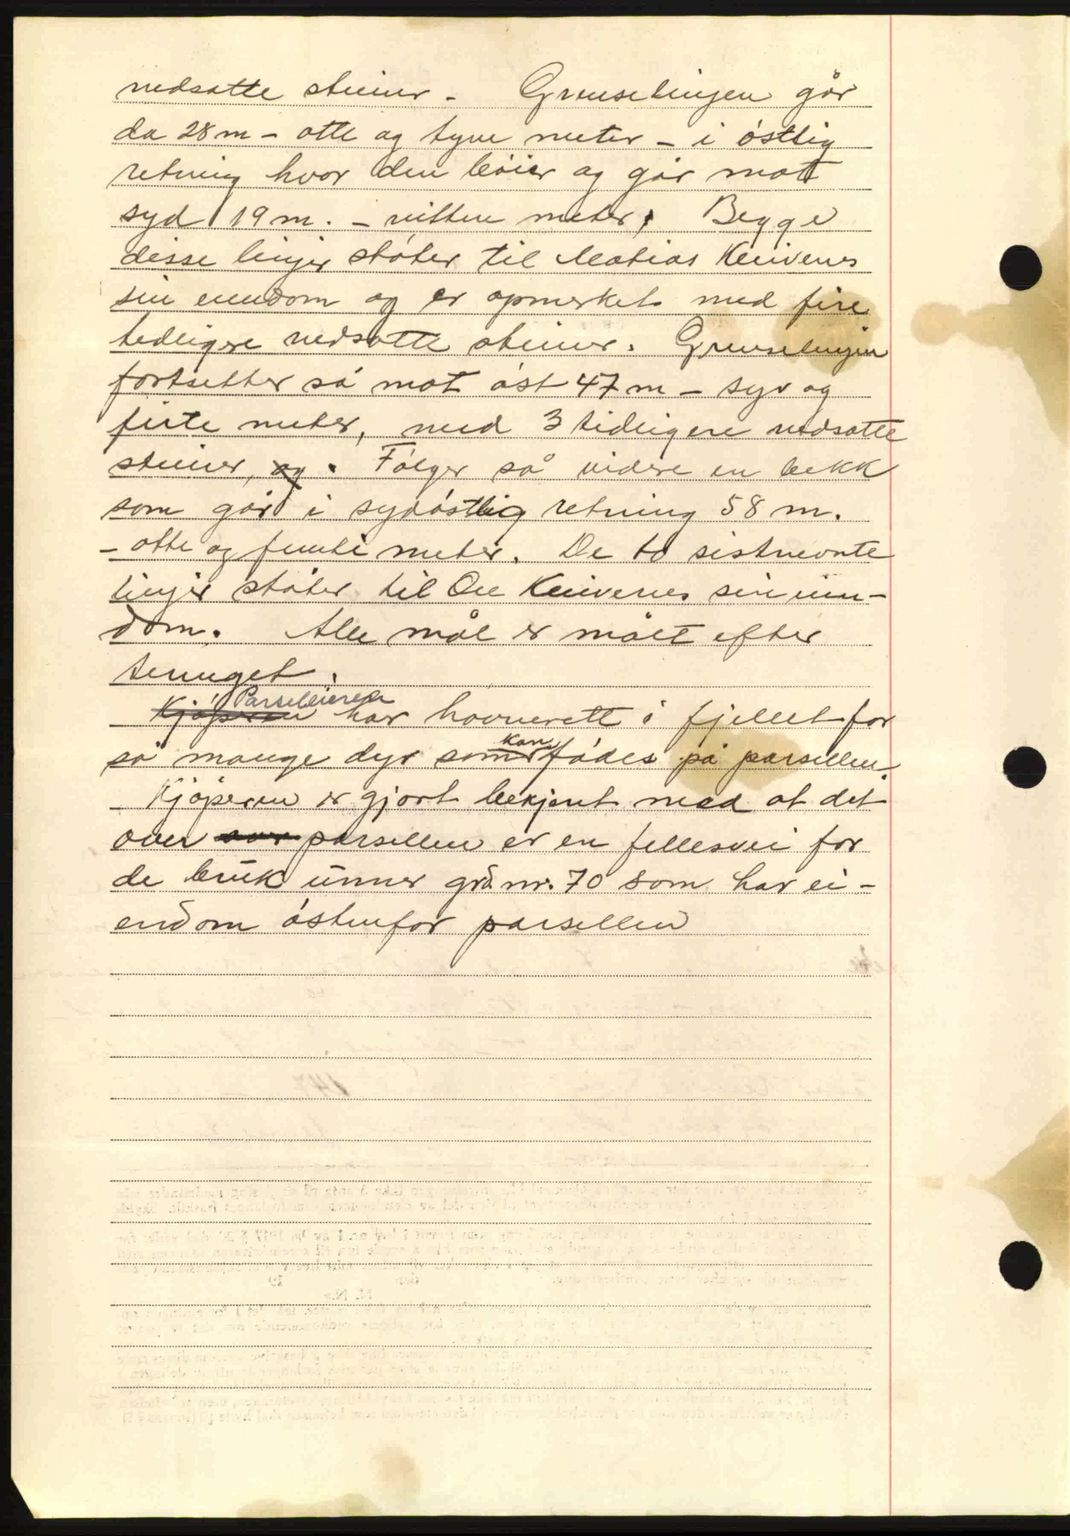 nedsatte steiner. Grenselinjen går
da 28 m – otte og tyve meter – i östlig
retning hvor den böier og går mot
syd 19 m. – nitten meter, Begge
disse linjer stöter til Matias Knivenes
sin eiendom og er opmerket med fire
tedligere nedsatte steiner. Grenselinjen
fortsetter så mot öst 47 m – syv og
firte meter, med 3 tidligere nedsatte
steiner, og. Fölger så videre en bekk
som går i sydöstlig retning 58 m.
– otte og femti meter. De to sistnevnte
linjer stöter til Ole Knivenes sin eien-
dom. Alle mål er målt efter
terenget.
Kjöperen Parseleieren har havnerett i fjellet for
så mange dyr som kan födes på parsellen.
Kjöperen er gjort bekjent med at det
over parsellen er en fellesvei for
de bruk unner grd nr. 70 som har ei-
endom östenfor parsellen